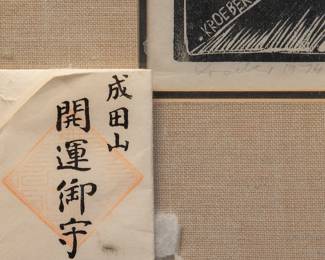 KROEBER
成田山
開運御守